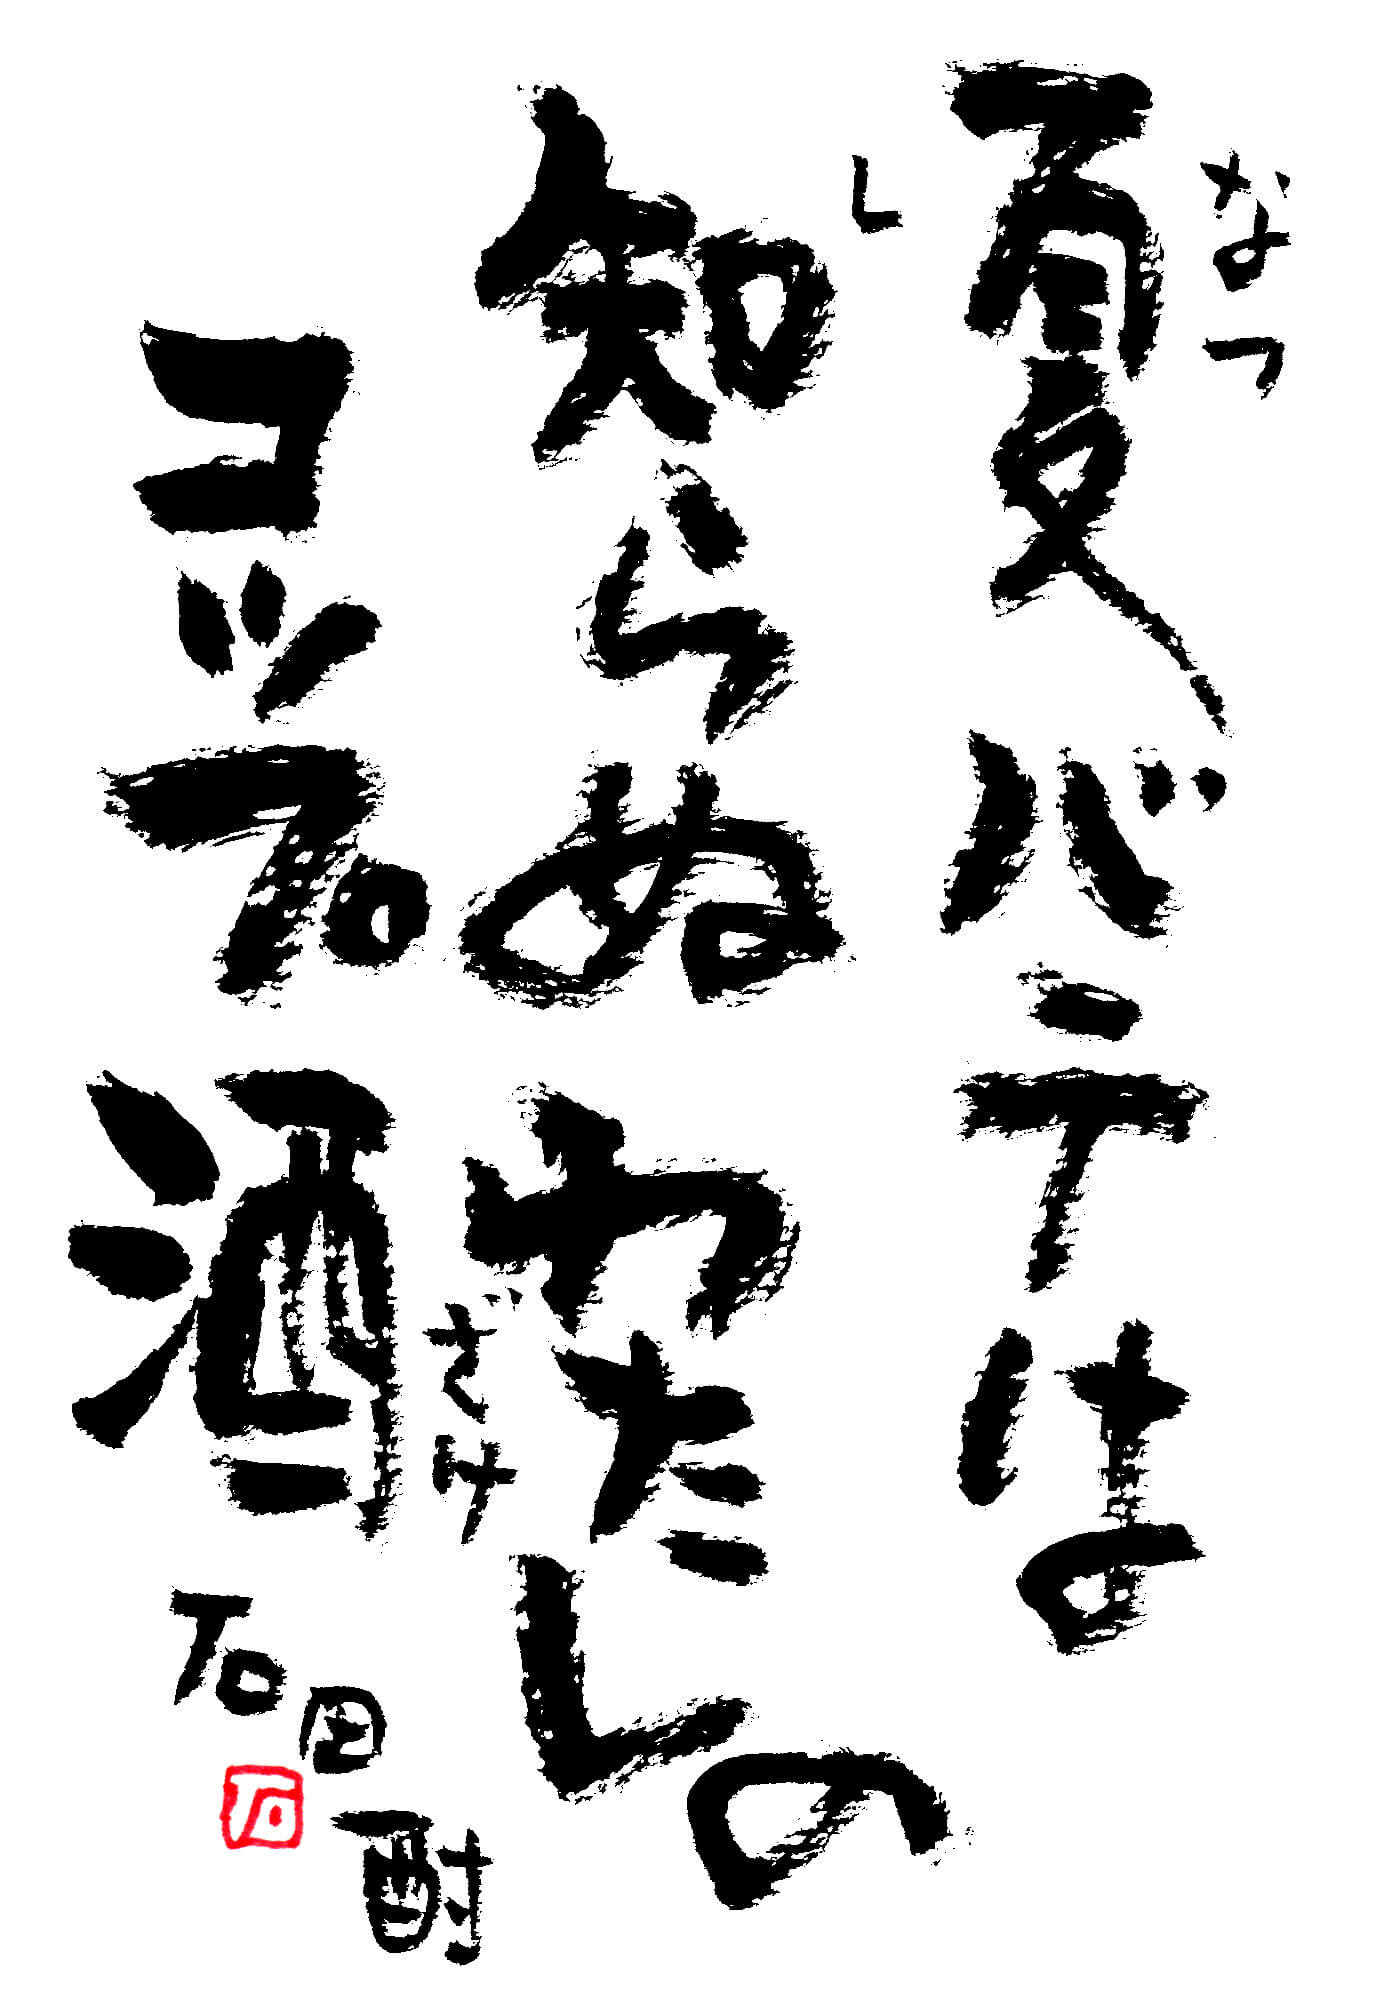 なつ
夏バテは
し
知らぬわたしの
ざけ
コップ酒
石田酎
石